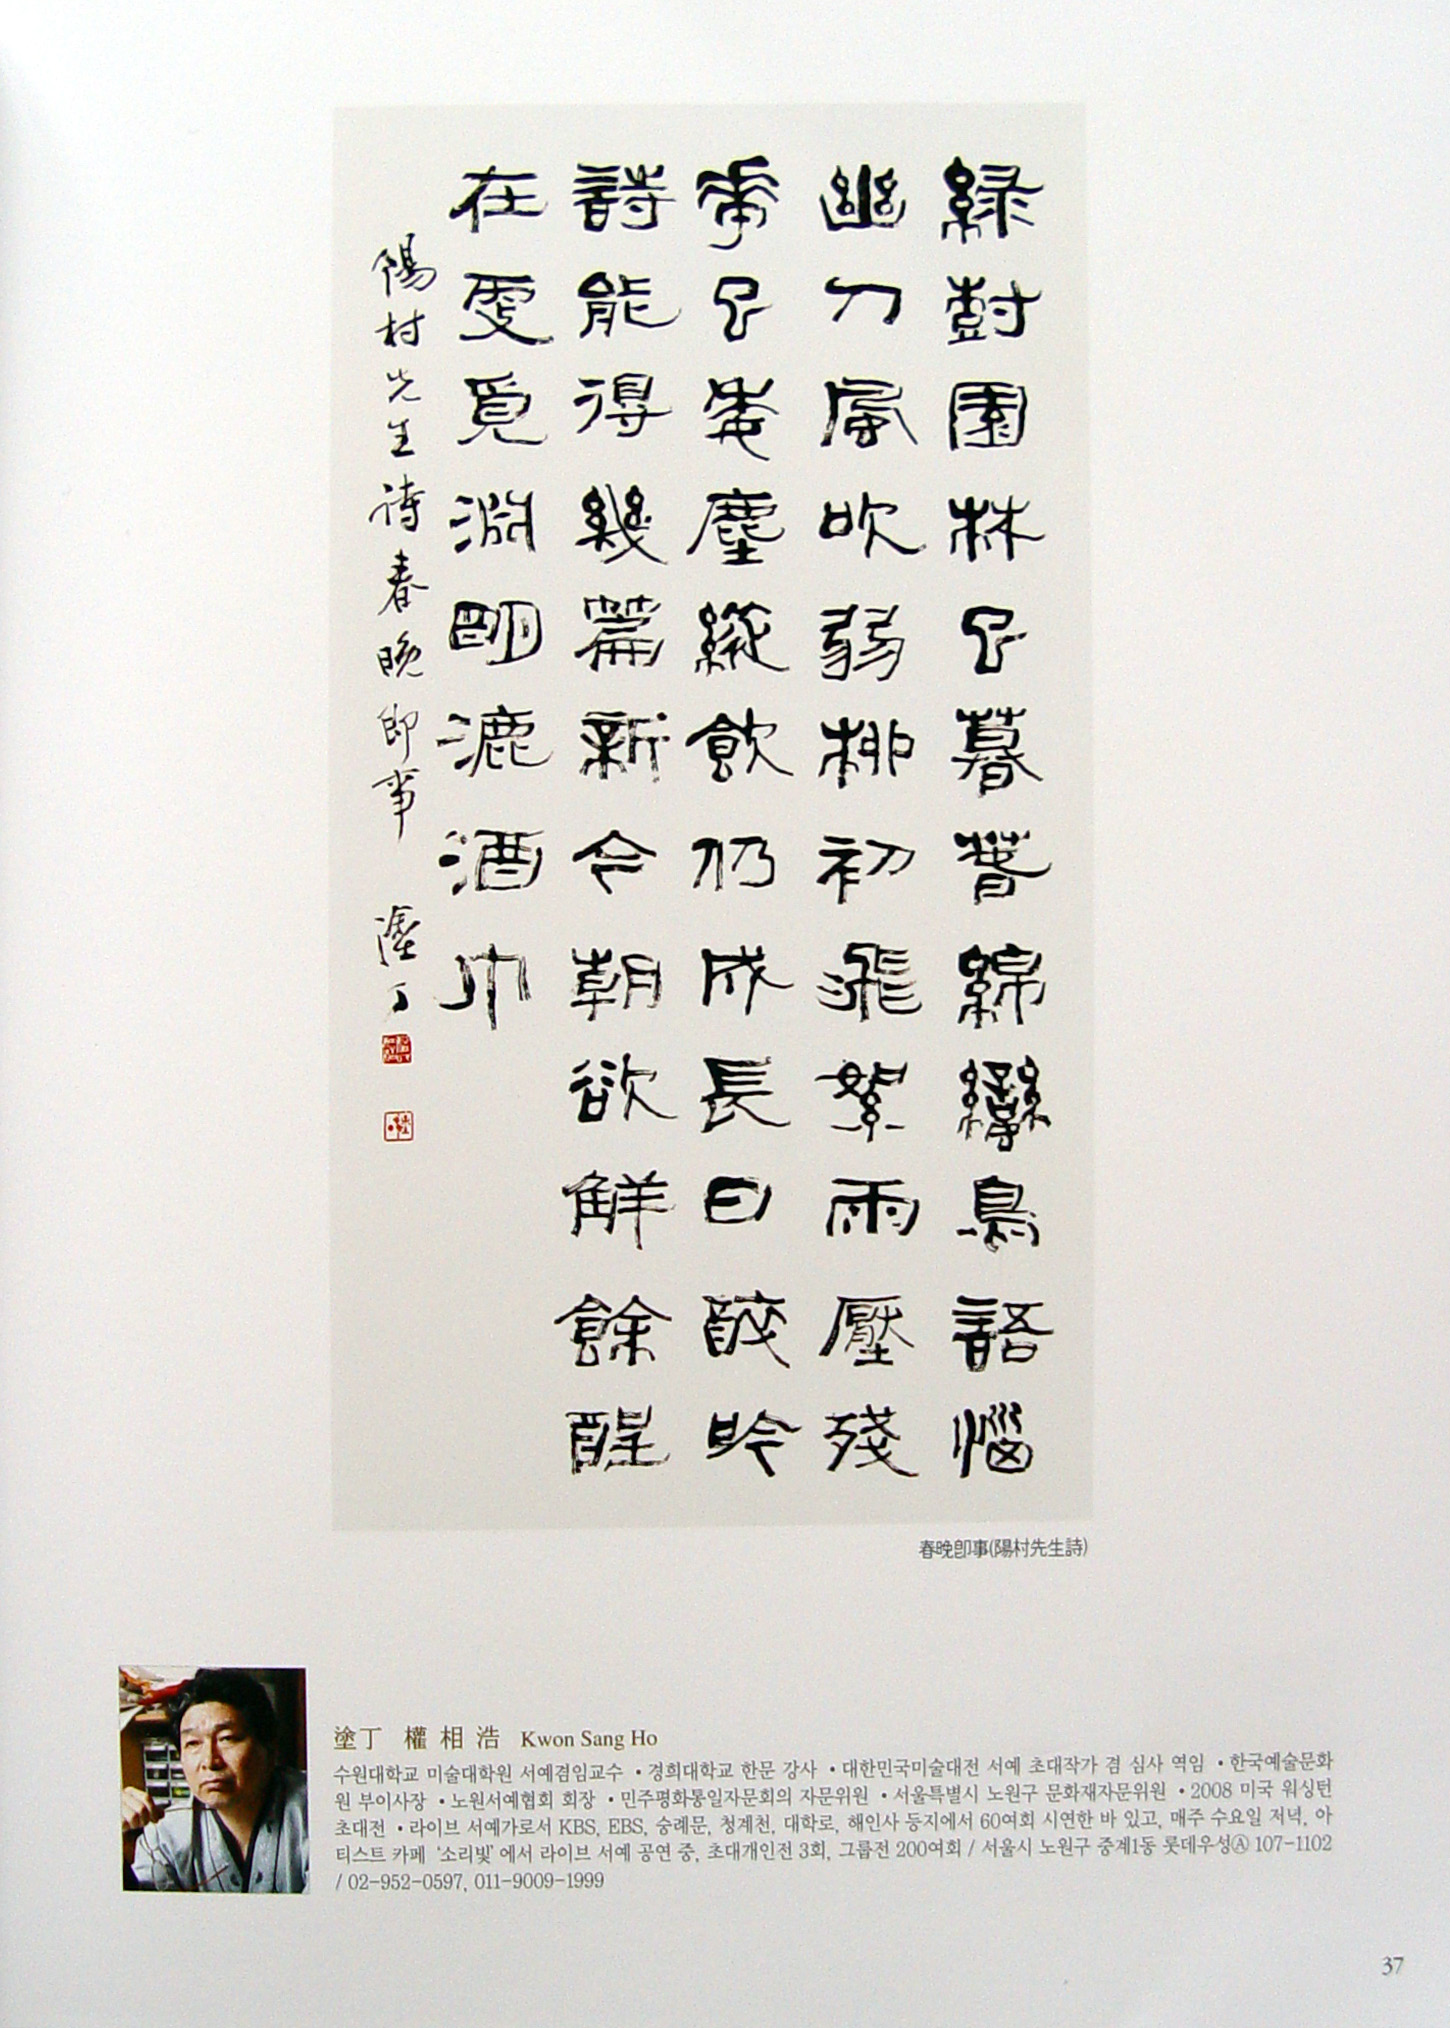 綠樹園林已暮春綿蠻鳥語惱
幽人風吹弱柳初飛絮雨壓殘
花已委塵縱飲仍成長日醉吟
詩能得幾篇新今朝欲解餘酲
在更覓淵明漉酒巾
陽村先生詩春晚卽事 塗丁
春晚卽事(陽村先生詩)
塗丁 權相浩 Kwon Sang Ho
수원대학교 미술대학원 서예겸임교수 •경희대학교 한문 강사 •대한민국미술대전 서예 초대작가 겸 심사 역임 •한국예술문화
원 부이사장 •노원서예협회 회장 •민주평화통일자문회의 자문위원 •서울특별시 노원구 문화재자문위원 •2008 미국 워싱턴
초대전 •라이브 서예가로서 KBS, EBS, 숭례문, 청계천, 대학로, 해인사 등지에서 60여회 시연한 바 있고, 매주 수요일 저녁, 아
티스트 카페 '소리빛'에서 라이브 서예 공연 중, 초대개인전 3회, 그룹전 200여회 / 서울시 노원구 중계1동 롯데우성Ⓐ 107-1102
/ 02-952-0597, 011-9009-1999
37